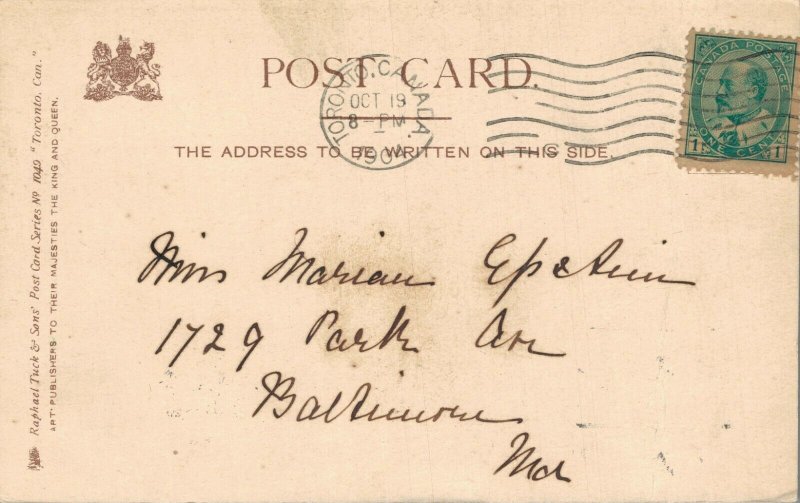 POST CARD.
TORONTO, CANADA.
OCT 19
8-PM
1904
CANADA POSTAGE
ONE CENT
1 1
THE ADDRESS TO BE WRITTEN ON THIS SIDE.
Raphael Tuck & Sons' Post Card Series No 1049 "Toronto, Can."
ART PUBLISHERS TO THEIR MAJESTIES THE KING AND QUEEN.
Miss Marian Epstein
1729 Park Ave
Baltimore
Md